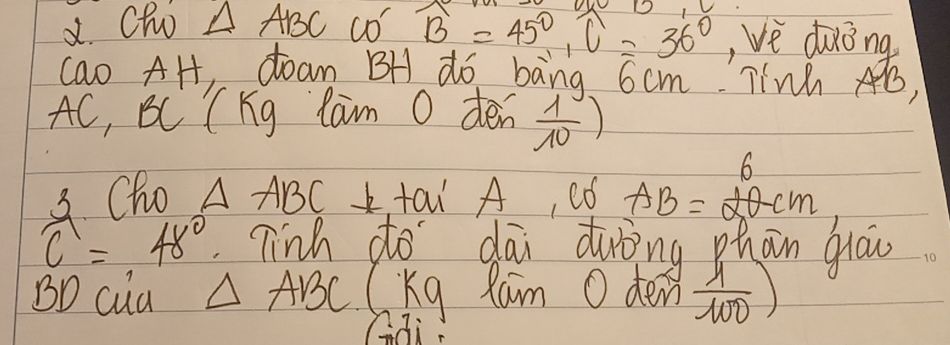 2. Cho Δ ABC có B̂ = 45⁰, Ĉ = 36⁰, Vẽ đường
cao AH, đoan BH đó bằng 6cm. Tính AB,
AC, BC (Kq làm O đến 1/10)
3. Cho Δ ABC ⊥ tai A, có AB = 6 cm,
Ĉ = 48⁰. Tính độ dài đường phân giác
BD của Δ ABC. (Kq làm O đến 1/100)
Giải: